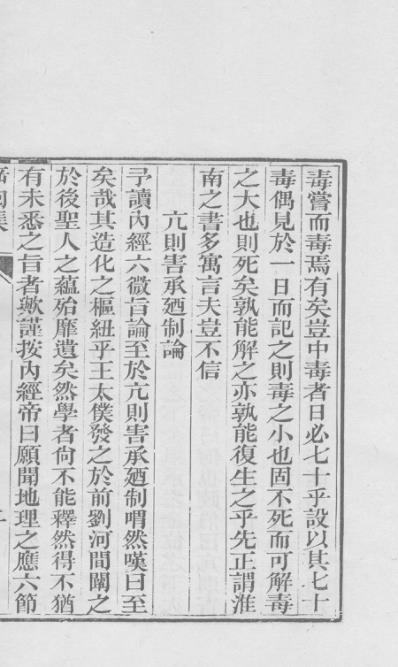 毒嘗而毒焉有矣豈中毒者日必七十乎設以其七十
毒偶見於一日而記之則毒之小也固不死而可解毒
之大也則死矣孰能解之亦孰能復生之乎先正謂淮
南之書多寓言夫豈不信
亢則害承廼制論
予讀內經六微旨論至於亢則害承廼制喟然嘆曰至
矣哉其造化之樞紐乎王太僕發之於前劉河間闡之
於後聖人之蘊殆靡遺矣然學者尙不能釋然得不猶
有未悉之旨者歟謹按內經帝曰願聞地理之應六節